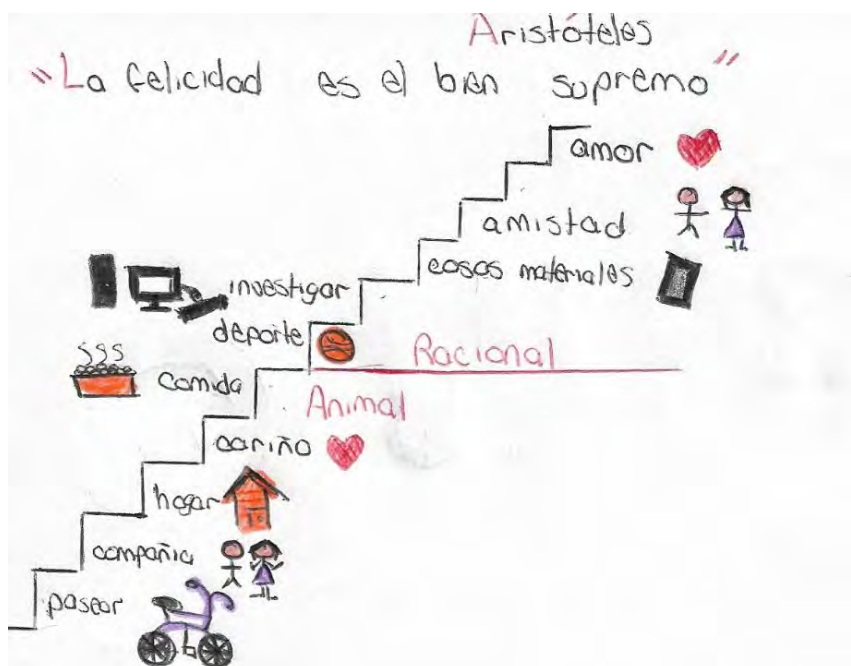 Aristóteles
"La felicidad es el bien supremo"
amor
amistad
cosas materiales
investigar
deporte
Racional
comida
Animal
cariño
hogar
compañia
pasear